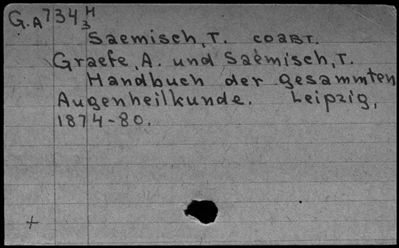 G.A 734 H/3
Saemisch, T. соавт.
Graefe, A. und Saemisch, T.
Handbuch der gesammten
Augenheilkunde. Leipzig,
1874-80.
+